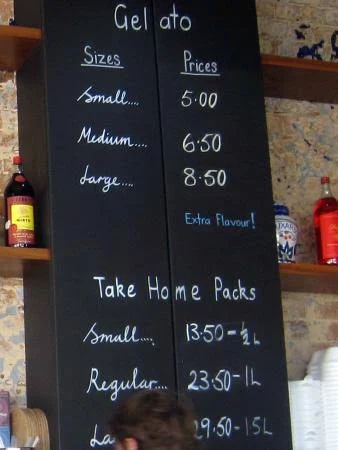 Gelato
Sizes Prices
Small.... 5.00
Medium.... 6.50
Large.... 8.50
Extra Flavour!
Take Home Packs
Small.... 13.50-½L
Regular.... 23.50-1L
29.50-1.5L